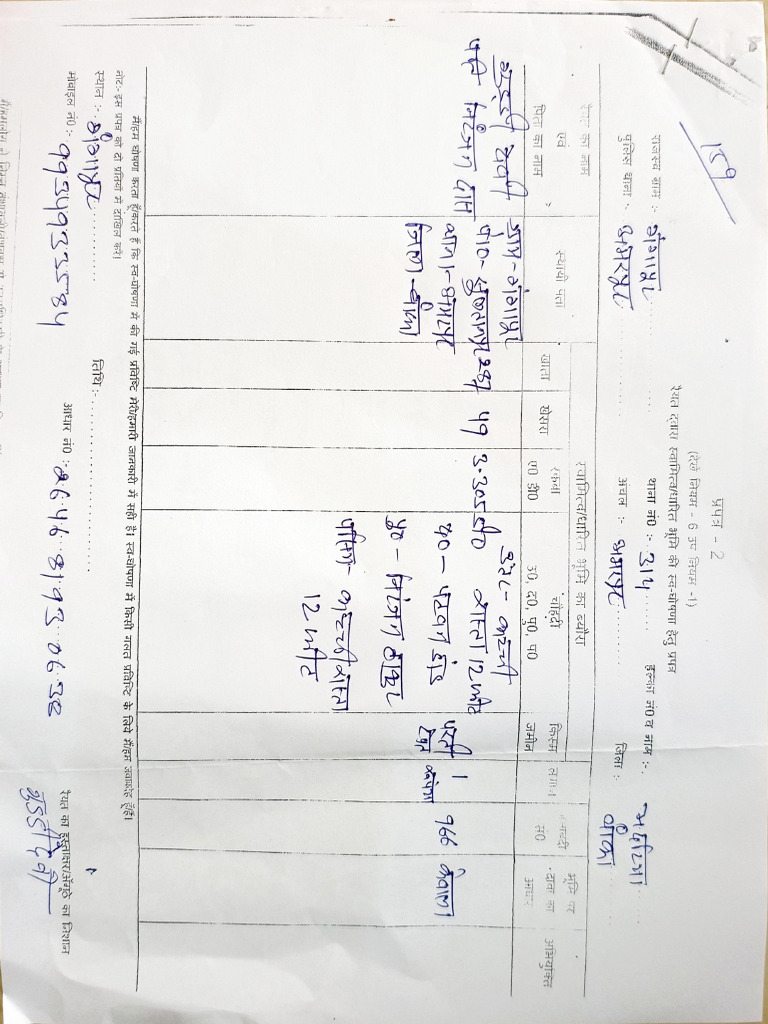 159
प्रपत्र - 2
(देखें नियम - 6 उप नियम -1)
रैयत द्वारा स्वामित्व/धारित भूमि की स्व-घोषणा हेतु प्रपत्र
राजस्व ग्राम :- गंगापुर थाना नं0 :- 314 हल्का नं0 व नाम :-
पुलिस थाना :- अमरपुर अंचल :- अमरपुर जिला :- बाँका
रैयत का नाम एवं पिता का नाम
स्थायी पता
स्वामित्व/धारित भूमि का ब्योरा
खाता
खेसरा
रकवा ए0 डी0
चौहद्दी उ0, द0, पु0, प0
किस्म जमीन
लगान
जमाबंदी सं0
भूमि पर दावा का आधार
अभियुक्ति
देवी
पति निरंजन दास
ग्राम - गंगापुर
पो0 -
थाना - अमरपुर
जिला - बाँका
49
3.305 डी0
उत्तर - कच्ची रास्ता 12 फीट
द0 -
पु0 - निरंजन ठाकुर
पश्चिम - कच्ची रास्ता
12 फीट
परती
1
966
केवाला
मैं/हम घोषणा करता हूँ/करते हैं कि स्व-घोषणा में की गई प्रविष्टि मेरी/हमारी जानकारी में सही है। स्व-घोषणा में किसी गलत प्रविष्टि के लिये मैं/हम जवाबदेह हूँ/हैं।
नोट:- इस प्रपत्र को दो प्रतियों में दाखिल करें।
स्थान :- गंगापुर तिथि :-
रैयत का हस्ताक्षर/अँगूठे का निशान
मोबाइल नं0 :- 9934933584 आधार नं0 :- 2646 8193 0632